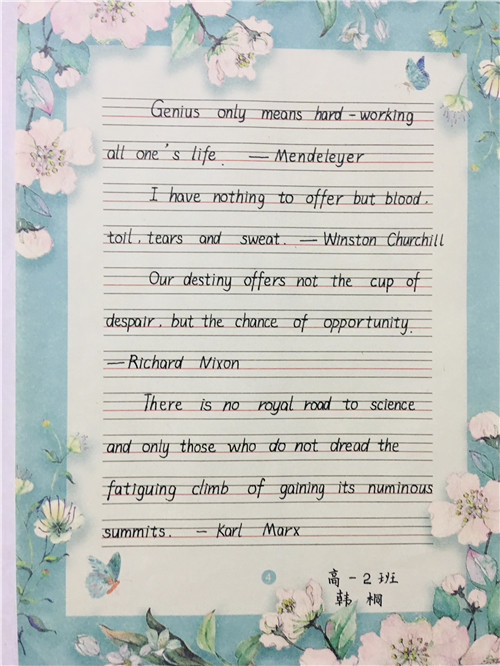 Genius only means hard-working
all one's life. — Mendeleyer
I have nothing to offer but blood,
toil, tears and sweat. — Winston Churchill
Our destiny offers not the cup of
despair, but the chance of opportunity.
— Richard Nixon
There is no royal road to science
and only those who do not dread the
fatiguing climb of gaining its numinous
summits. — Karl Marx
4
高一2班
韩桐